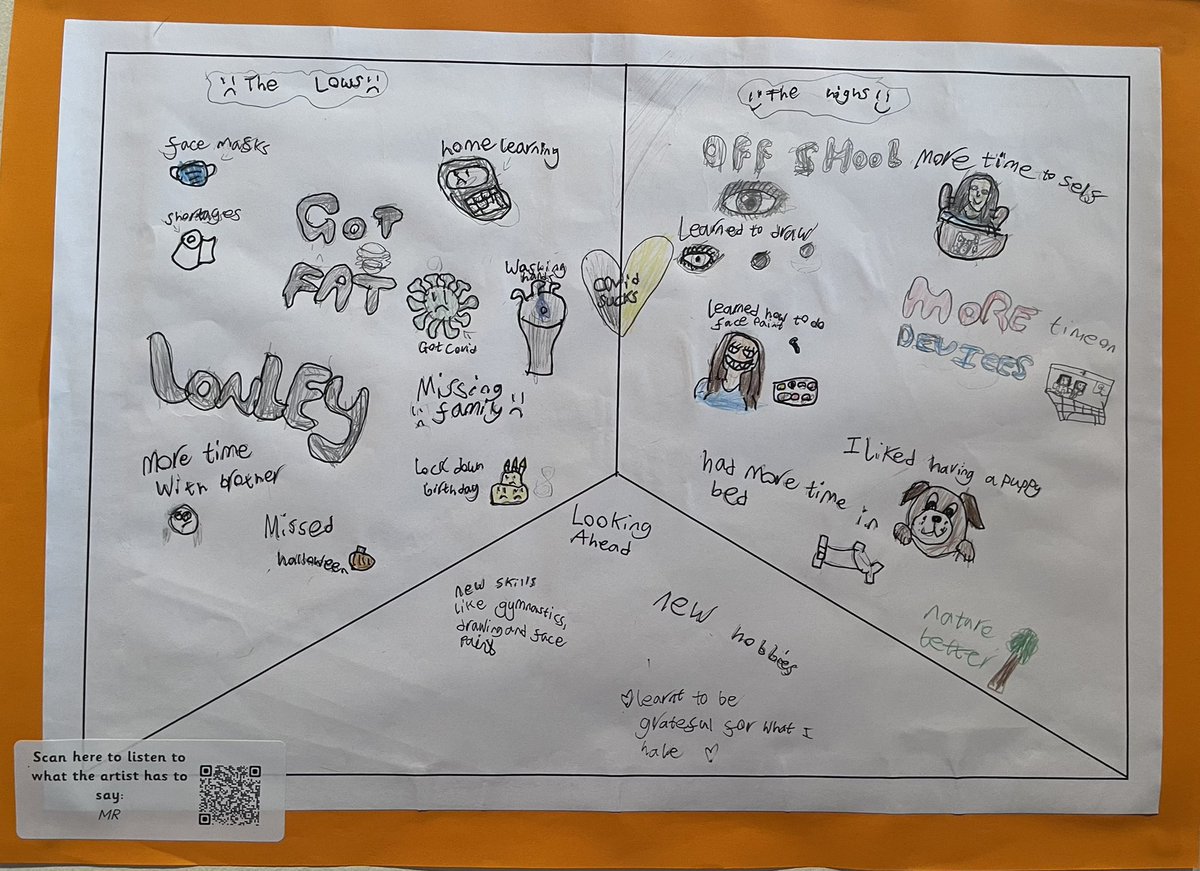 The Lows
face masks
home learning
shortages
GoT
FAT
Washing
hands
Got covid
LONLEy
Missing
family
More time
With brother
Lock down
birthday
Missed
halloween
covid
sucks
The highs
OFF SHOOL
More time to self
Learned to draw
learned how to do
face paint
MORE time on
DEVIEES
had more time in
bed
I liked having a puppy
nature
better
Looking
Ahead
new skills
like gymnastics,
drawing and face
paint
new hobbies
learnt to be
grateful for what I
have
Scan here to listen to
what the artist has to
say:
MR